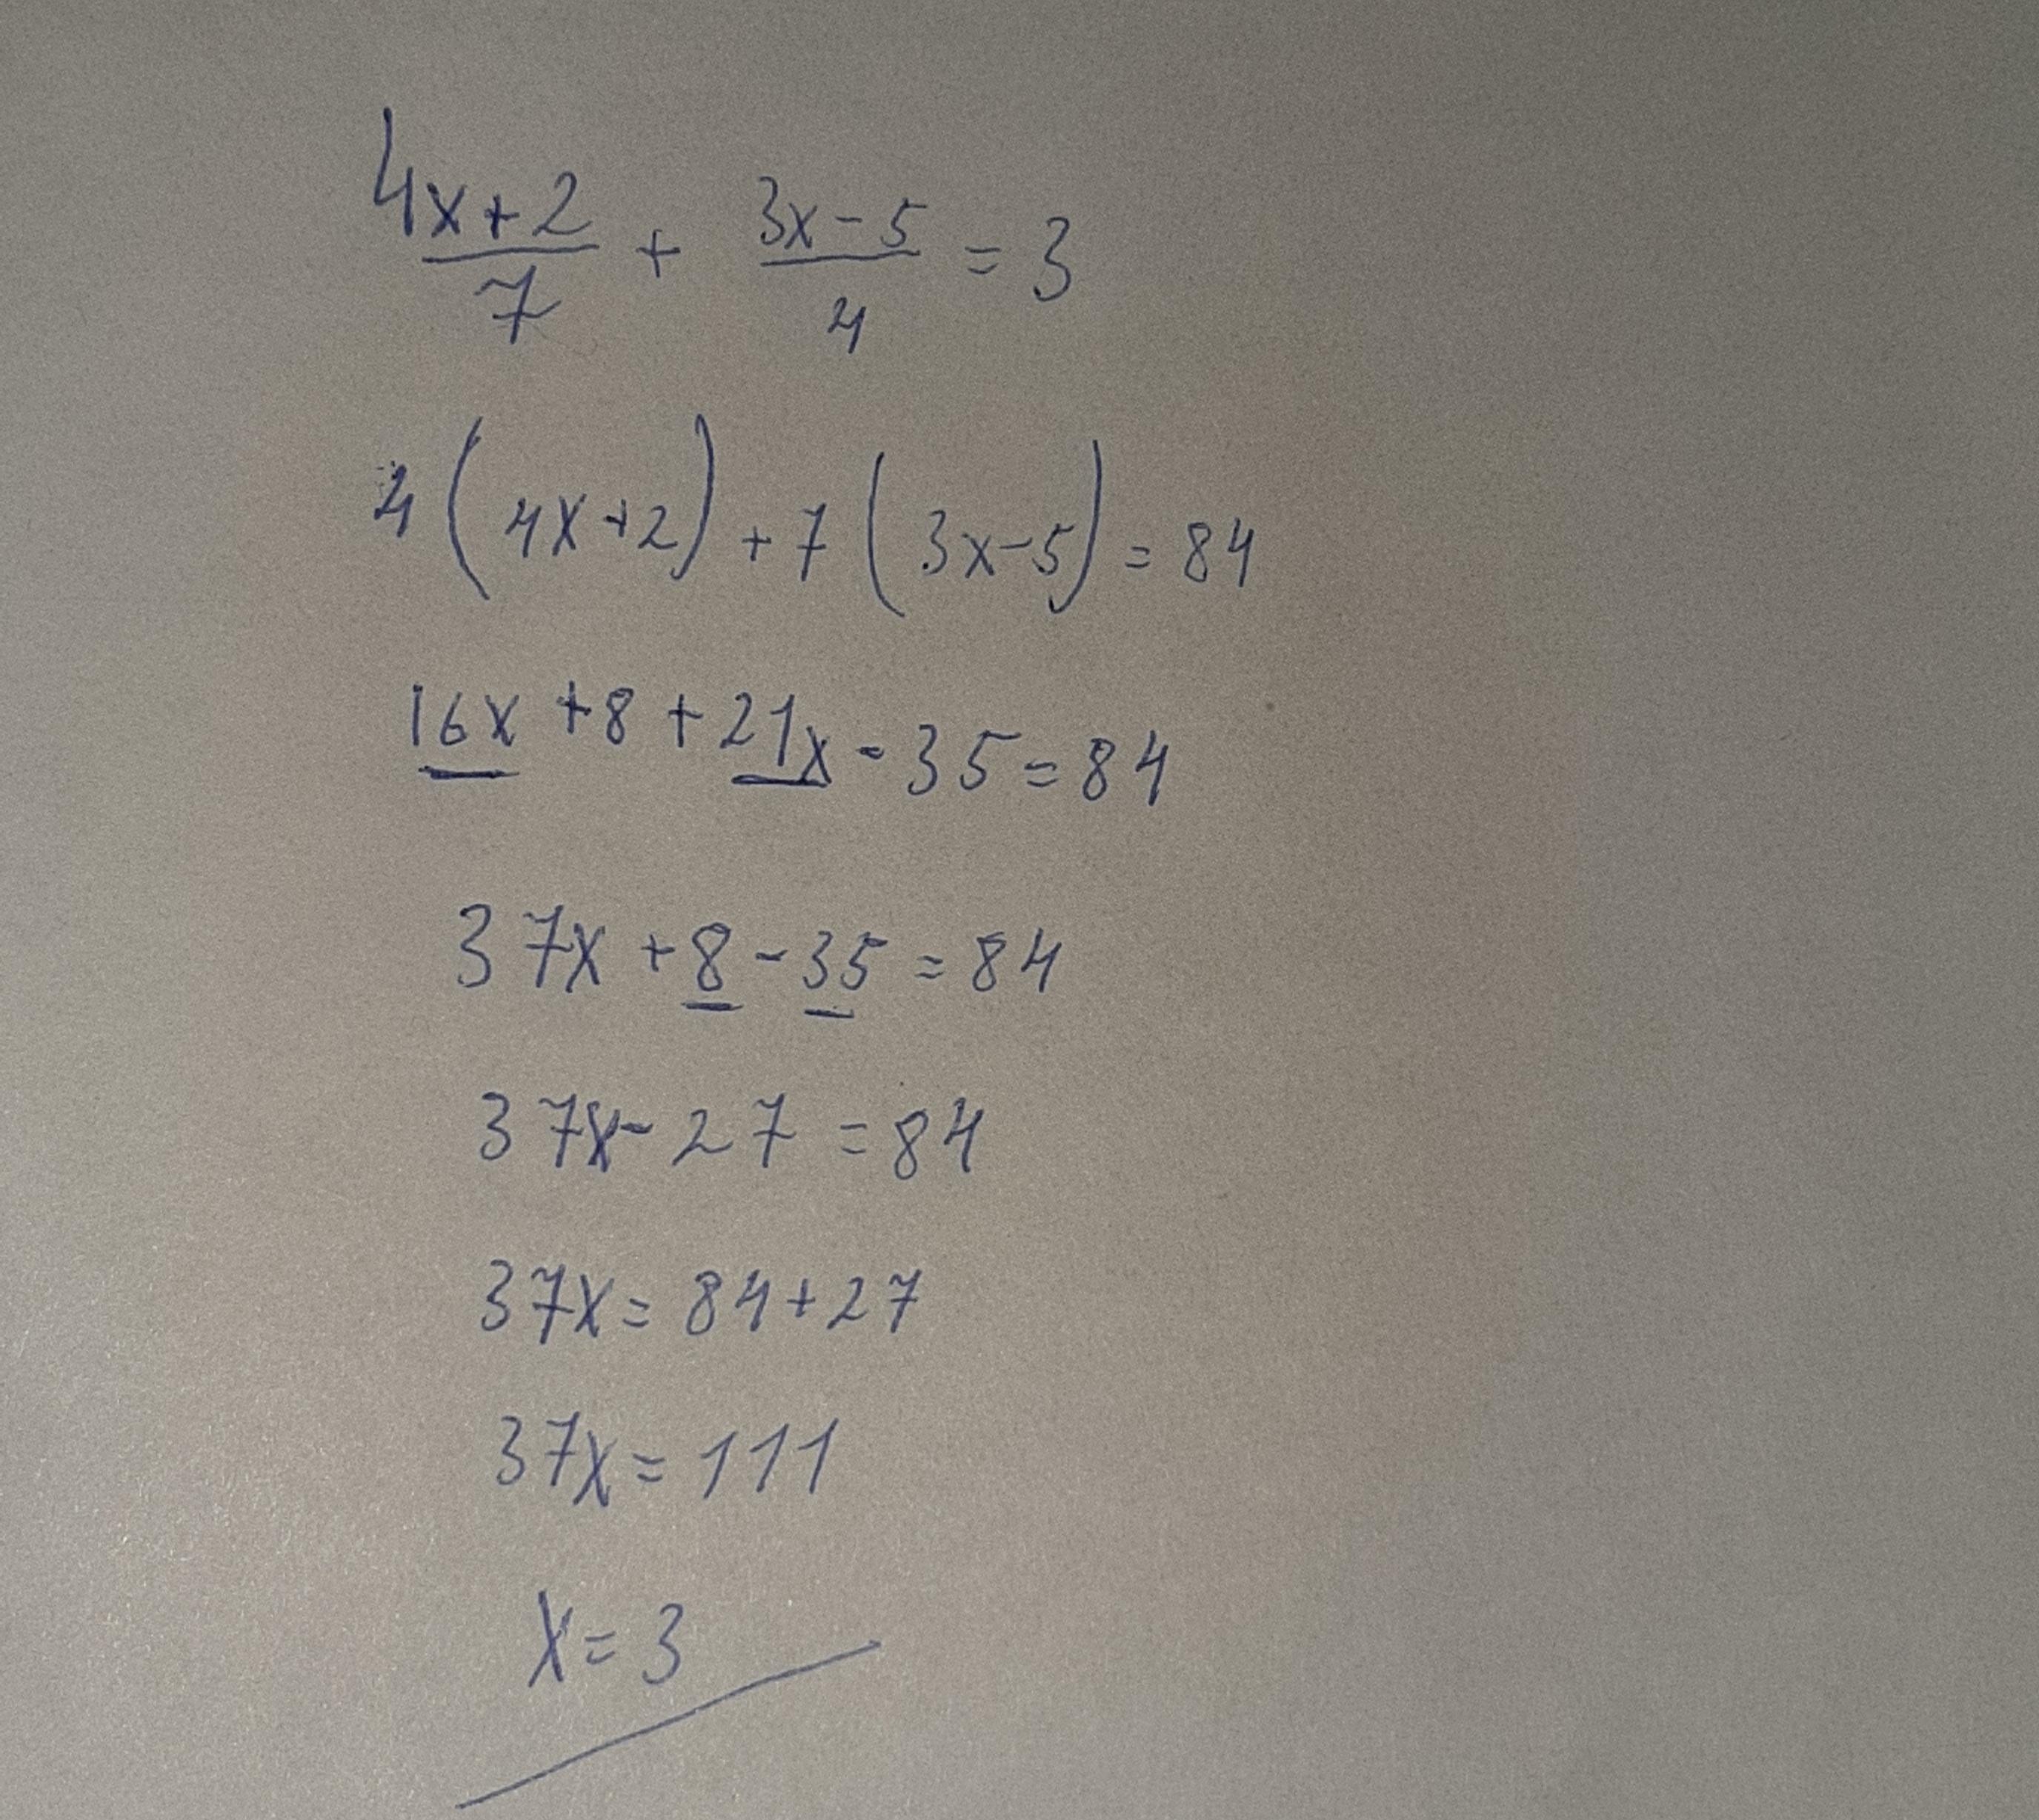 (4x+2)/7 + (3x-5)/4 = 3
4(4x+2)+7(3x-5)=84
16x+8+21x-35=84
37x+8-35=84
37x-27=84
37x=84+27
37x=111
x=3